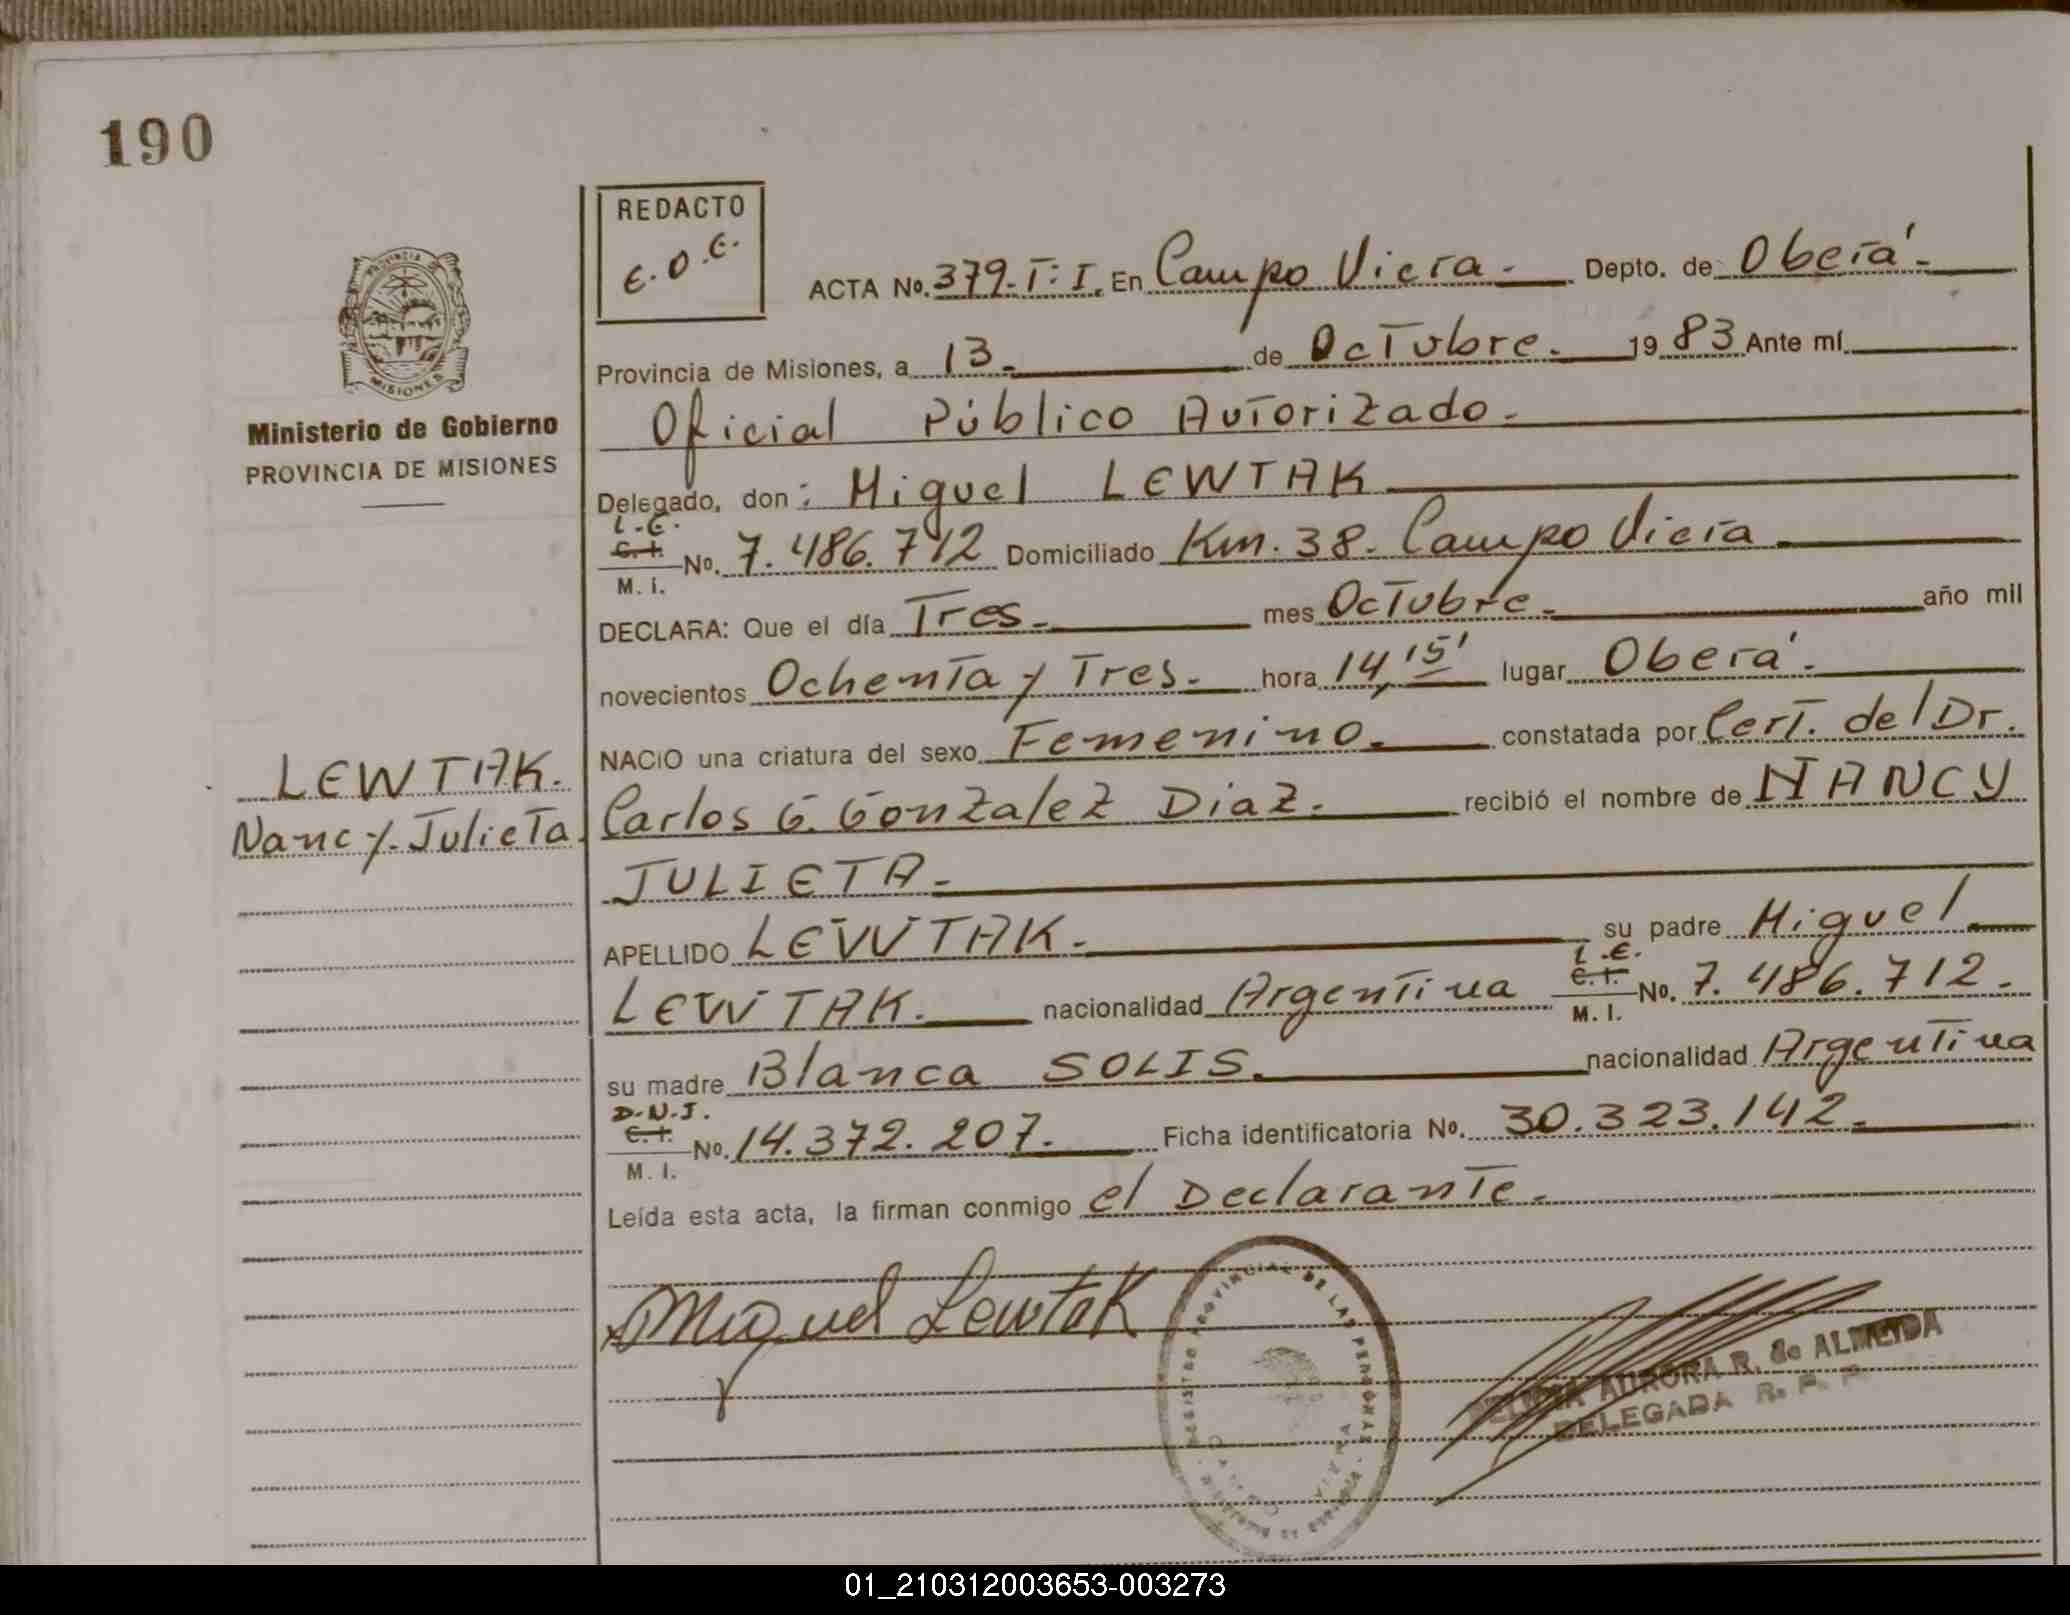 190
REDACTO
E.O.E.
PROVINCIA DE
MISIONES
Ministerio de Gobierno
PROVINCIA DE MISIONES
ACTA No. 379.T:I. En Campo Viera.- Depto. de Oberá.-
Provincia de Misiones, a 13.- de Octubre.- 1983 Ante mí
Oficial Público Autorizado.-
Delegado, don: Miguel LEWTAK
L.E.
C.I.
M. I. No. 7.486.712 Domiciliado Km. 38. Campo Viera
DECLARA: Que el día Tres.- mes Octubre.- año mil
novecientos Ochenta y Tres.- hora 14,15' lugar Oberá.-
NACIO una criatura del sexo Femenino.- constatada por Cert. del Dr.
Carlos G. Gonzalez Diaz.- recibió el nombre de NANCY
JULIETA.-
LEWTAK.
Nancy. Julieta.
APELLIDO LEWTAK.- su padre Miguel
LEWTAK. nacionalidad Argentina L.E. C.I. M. I. No. 7.486.712.
su madre Blanca SOLIS. nacionalidad Argentina
D.N.I.
C.I.
M. I. No. 14.372.207. Ficha identificatoria No. 30.323.142.
Leída esta acta, la firman conmigo el Declarante.-
Miguel Lewtak
REGISTRO PROVINCIAL DE LAS PERSONAS
AURORA R. de ALMEIDA
DELEGADA R. P. P.
01_210312003653-003273